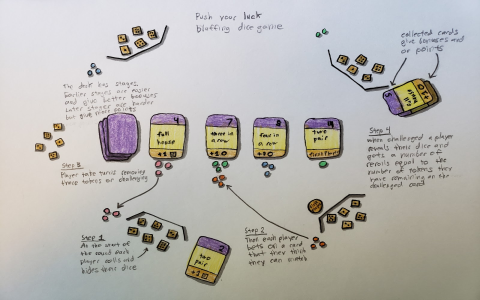 Push your luck
bluffing dice game
collected cards
give bonuses and
or points
The deck has stages.
Earlier stages are easier
and give better bonuses
Later stages are harder
but give more points
4
full
house
+1
7
three in
a row
+1
8
four in
a row
+1
14
two
pair
5
+1
Step 3
Player take turns removing
these tokens or challenging
Step 4
When challenged a player
reveals their dice and
gets a number of
rerolls equal to the
number of tokens they
have remaining on the
challenged card
Step 1
At the start of
the round each
player rolls and
hides their dice
2
two
pair
+1
Step 2
Then each player
bets on a card
that they think
they can match